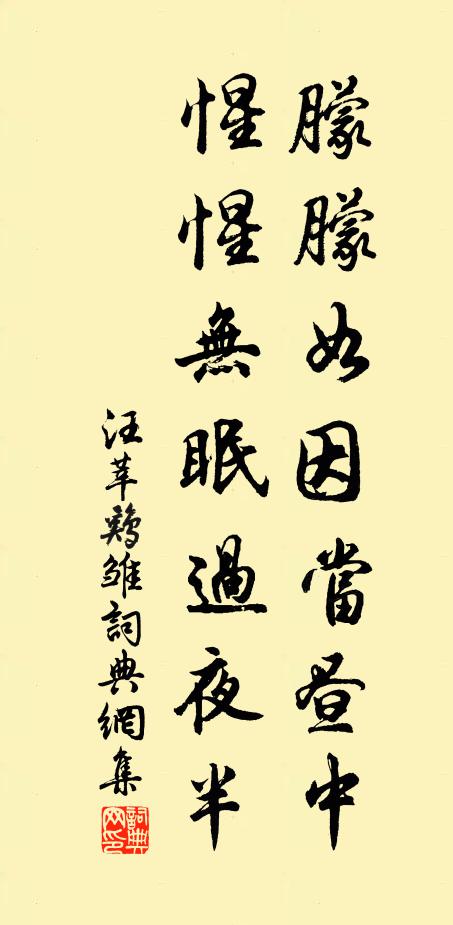 朦朦如因當晝中
惺惺無眠過夜半
汪莘鷄雏詞典網集
詞典網印